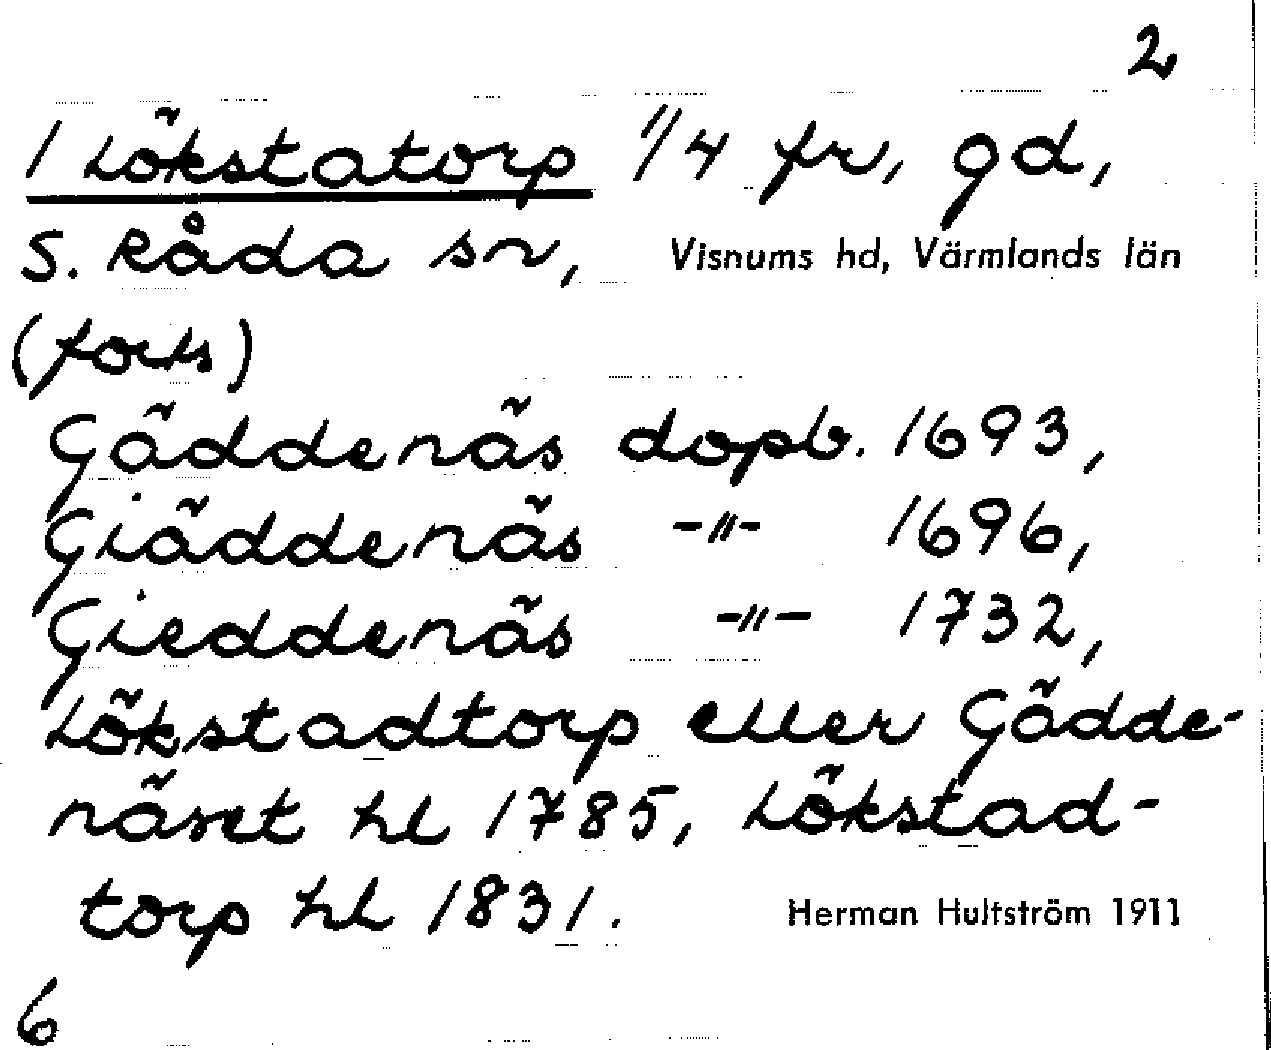 2
1 Lökstatorp 1/4 fr, gd,
S. Råda sn, Visnums hd, Värmlands län
(forts)
Gäddenäs dopb. 1693,
Giäddenäs -"- 1696,
Gieddenäs -"- 1732,
Lökstadtorp eller Gädde-
näset hl 1785, Lökstad-
torp hl 1831. Herman Hultström 1911
6